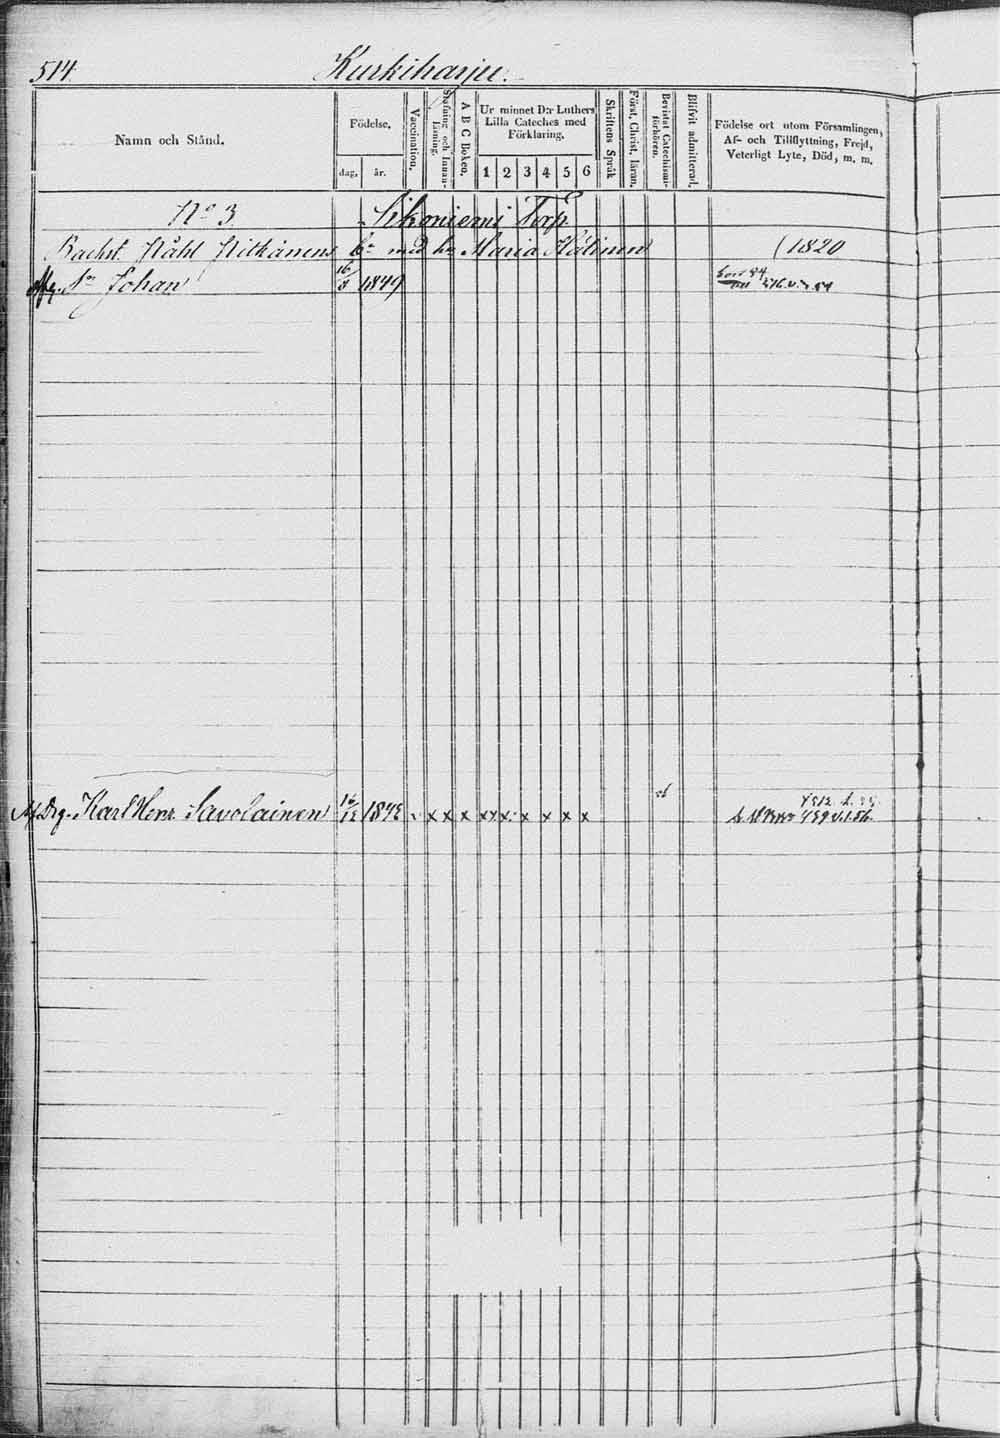 514. Kurkiharju.
Namn och Stånd.
Födelse.
dag. år.
Vaccination.
Stafning och Innanläsning.
A B C Boken.
Ur minnet D:r Luthers Lilla Cateches med Förklaring.
1 2 3 4 5 6
Skriftens Språk
Först. Christ. läran.
Bevistat Catechismiförhören.
Blifvit admitterad.
Födelse ort utom Församlingen, Af- och Tillflyttning, Frejd, Veterligt Lyte, Död, m. m.
No 3 Sikoniemi Torp
Bachst. Påhl Pitkänens bn med hu Maria Hälinen (1820
Sn Johan 16/3 1849
Drg. Karl Henr. Savolainen 16/12 1842 x x x x x x x x x
459